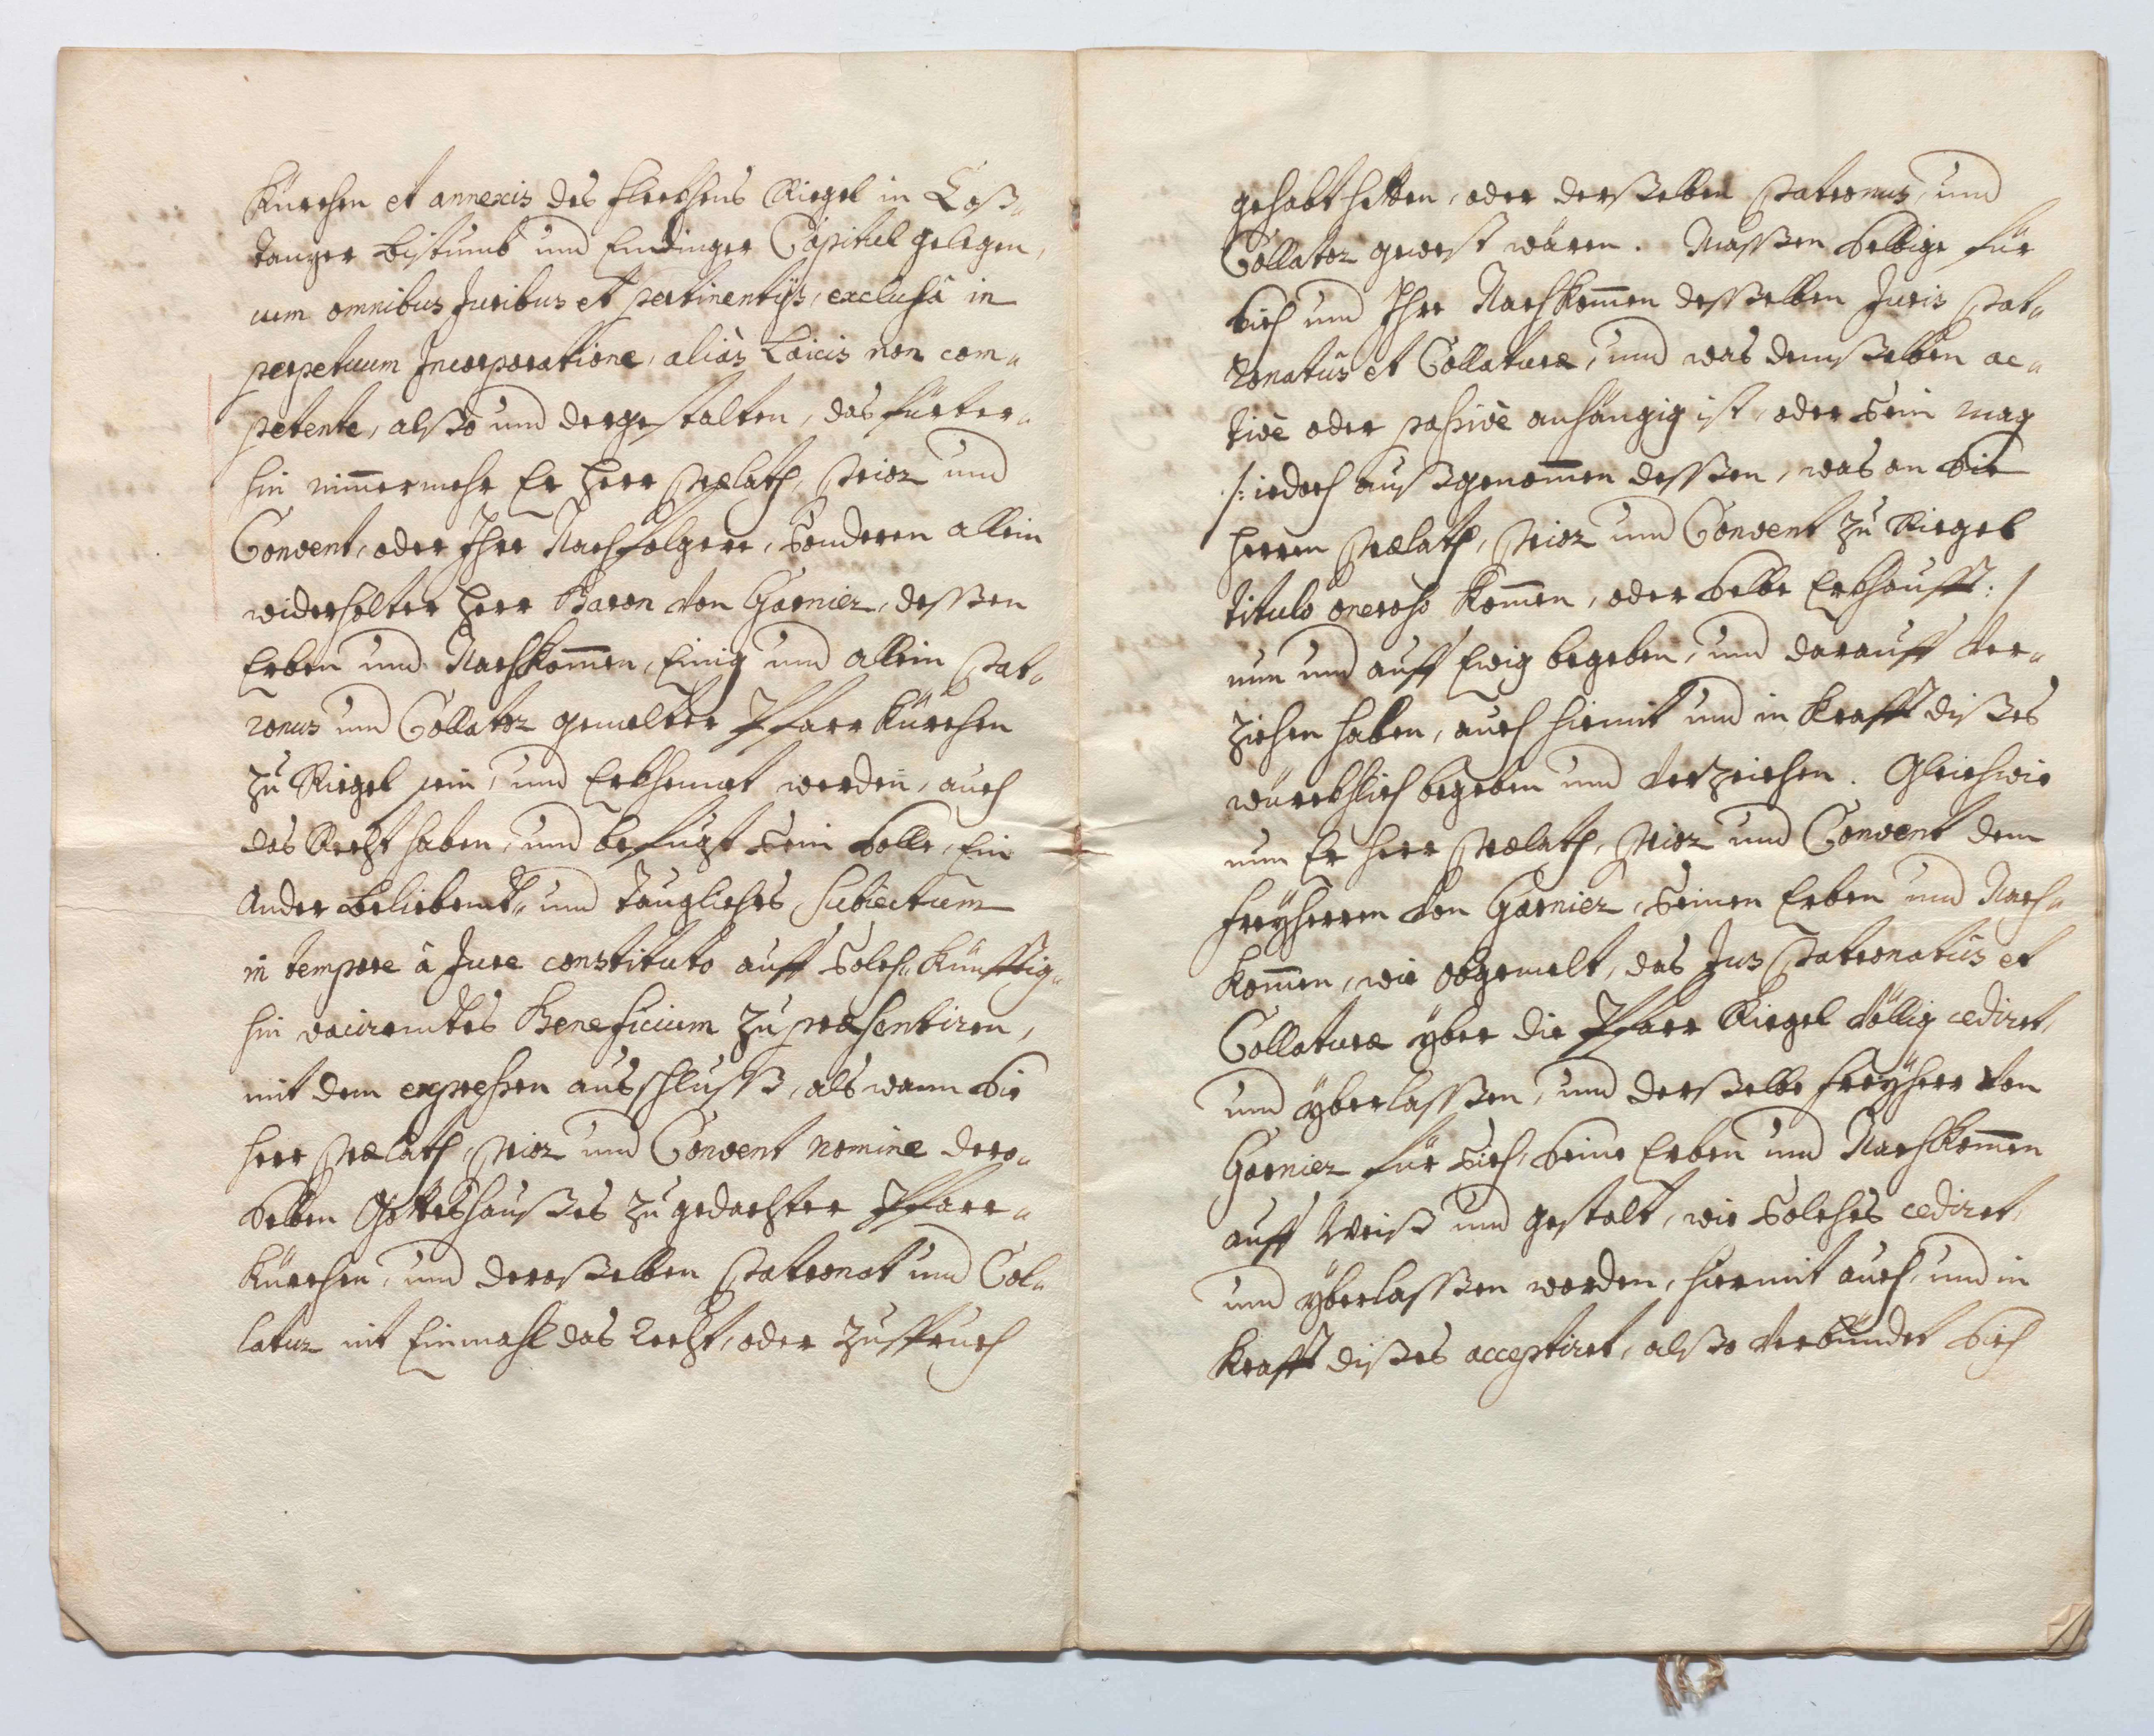 Kürchen et annexis des Fleckhens Riegel in Coß„
tanzer Bistumb und Endinger Capitul gelegen,
cum omnibus Juribus et pertinentijs, exclusâ in
perpetuum Incorporatione, aliàs Laicis non com„
petente, alßo und dergestalten, das fürter„
hin nim̄ermehr Er Herr Prælath, Prior und
Convent, oder Ihre Nachfolgere, sonderen allein
widerholter Herr Baron von Garnier, deßsen
Erben und Nachkom̄en, Einig und allein Pat„
ronus und Collator gemelter Pfarr Kürchen
zu Riegel sein, und Erkhennt werden, auch
das Recht haben, und befüegt sein solle, Ein
Ander beliebent„ und taugliches Subiectum
in tempore à Jure constituto auff solch„ künfftig„
hin vacirentes Beneficium zu præsentiren,
mit dem expressen ausschlusß, als wann sie
Herr Prælath, Prior und Convent nomine dero„
selben Gottshaußes zu gedachter Pfarr„
Kürchen, und deroßelben Patronat und Col„
latur nit Einmahl das Recht, oder Zuspruch
gehabt hetten, oder derßelben Patronus, und
Collator gewest wären. Massen selbige für
sich und Ihre Nachkom̄en desselben Juris Pat„
ronatûs et Collaturæ, und was demßelben ac„
tivè oder passivè anhängig ist, oder sein mag
/: iedoch außgenom̄en deßsen, was an die
Herren Prælath, Prior und Convent zu Riegel
titulo oneroso kom̄en, oder selbe Erkhaufft: /
nun und auff Ewig begeben, und darauff ver„
ziehen haben, auch hiemit und in Krafft dißes
würckhlich begeben und verzeichen. Gleichwie
nun Er Herr Prælath, Prior und Convent dem
Freyherren von Garnier, seinen Erben und Nach„
kom̄en, wie obgemelt, das Jus Patronatûs et
Collaturæ yber die Pfarr Riegel völlig cediret,
und yberlaßsen, und derßelbe Freyherr von
Garnier für sich, seine Erben und Nachkom̄en
auff Weiß und gestalt, wie solches cediret,
und yberlaßsen worden, hiermit auch, und in
Krafft dißes acceptiret, alßo verbündet sich